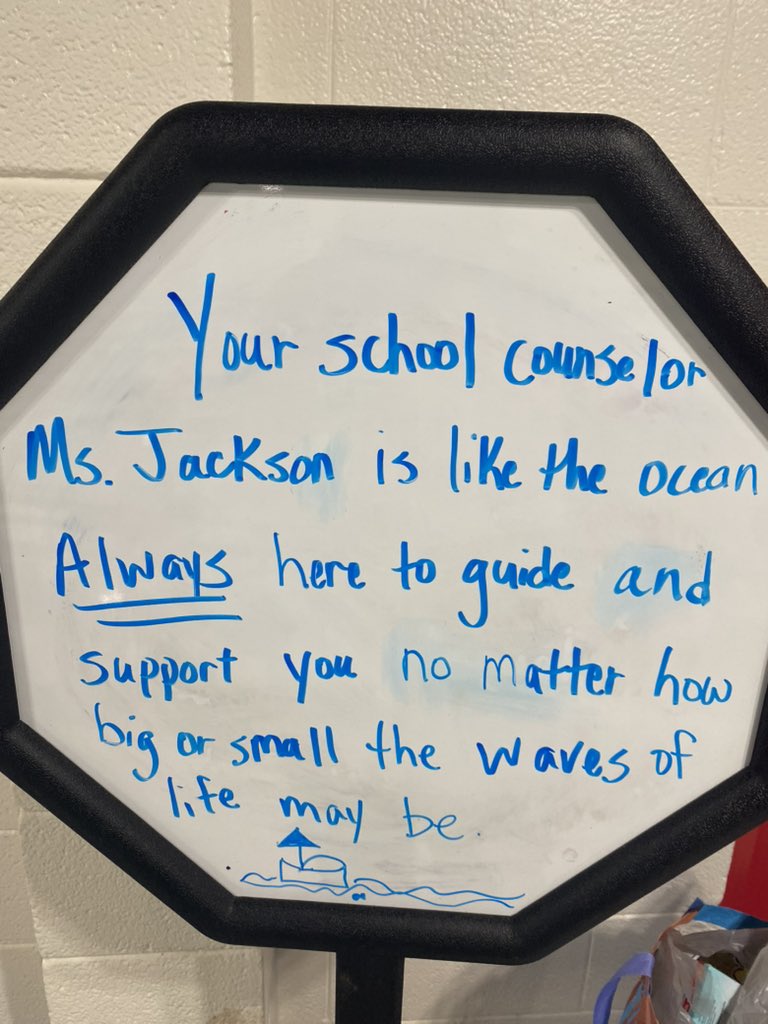 Your school counselor
Ms. Jackson is like the ocean
Always here to guide and
support you no matter how
big or small the waves of
life may be.